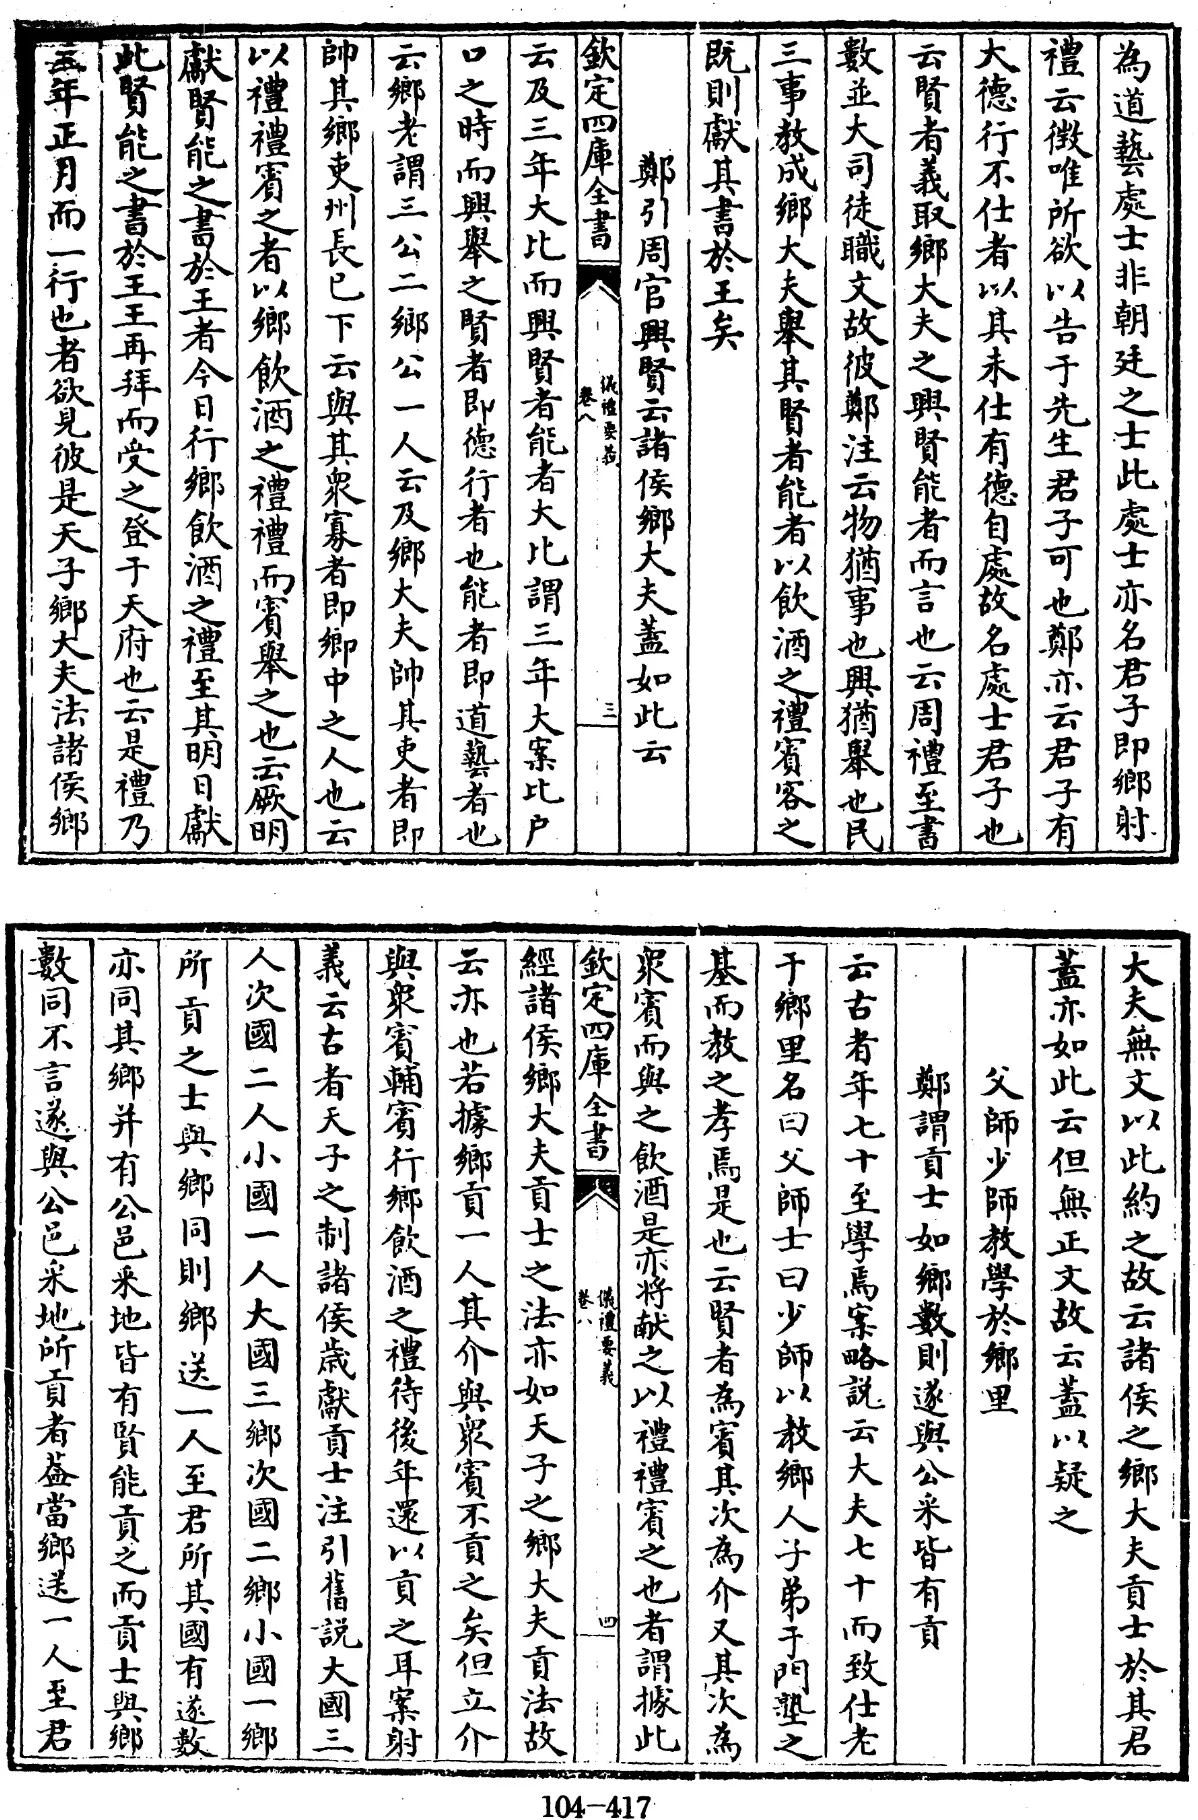 為道藝處士非朝廷之士此處士亦名君子即鄉射
禮云徴唯所欲以告于先生君子可也鄭亦云君子有
大德行不仕者以其未仕有德自處故名處士君子也
云賢者義取鄉大夫之興賢能者而言也云周禮至書
數並大司徒職文故彼鄭注云物猶事也興猶舉也民
三事教成鄉大夫舉其賢者能者以飲酒之禮賓客之
既則獻其書於王矣
鄭引周官興賢云諸侯鄉大夫蓋如此云
欽定四庫全書
儀禮要義
卷八
三
云及三年大比而興賢者能者大比謂三年大案比户
口之時而興舉之賢者即德行者也能者即道藝者也
云鄉老謂三公二鄉公一人云及鄉大夫帥其吏者即
帥其鄉吏州長已下云與其衆寡者即鄉中之人也云
以禮禮賓之者以鄉飲酒之禮禮而賓舉之也云厥明
獻賢能之書於王者今日行鄉飲酒之禮至其明日獻
此賢能之書於王王再拜而受之登于天府也云是禮乃
三年正月而一行也者欲見彼是天子鄉大夫法諸侯鄉
大夫無文以此約之故云諸侯之鄉大夫貢士於其君
蓋亦如此云但無正文故云蓋以疑之
父師少師教學於鄉里
鄭謂貢士如鄉數則遂與公采皆有貢
云古者年七十至學焉案略説云大夫七十而致仕老
于鄉里名曰父師士曰少師以教鄉人子弟于門塾之
基而教之孝焉是也云賢者為賓其次為介又其次為
衆賓而與之飲酒是亦將献之以禮禮賓之也者謂據此
欽定四庫全書
儀禮要義
卷八
四
經諸侯鄉大夫貢士之法亦如天子之鄉大夫貢法故
云亦也若據鄉貢一人其介與衆賓不貢之矣但立介
與衆賓輔賓行鄉飲酒之禮待後年還以貢之耳案射
義云古者天子之制諸侯歲獻貢士注引舊説大國三
人次國二人小國一人大國三鄉次國二鄉小國一鄉
所貢之士與鄉同則鄉送一人至君所其國有遂數
亦同其鄉并有公邑采地皆有賢能貢之而貢士與鄉
數同不言遂與公邑采地所貢者蓋當鄉送一人至君
104-417